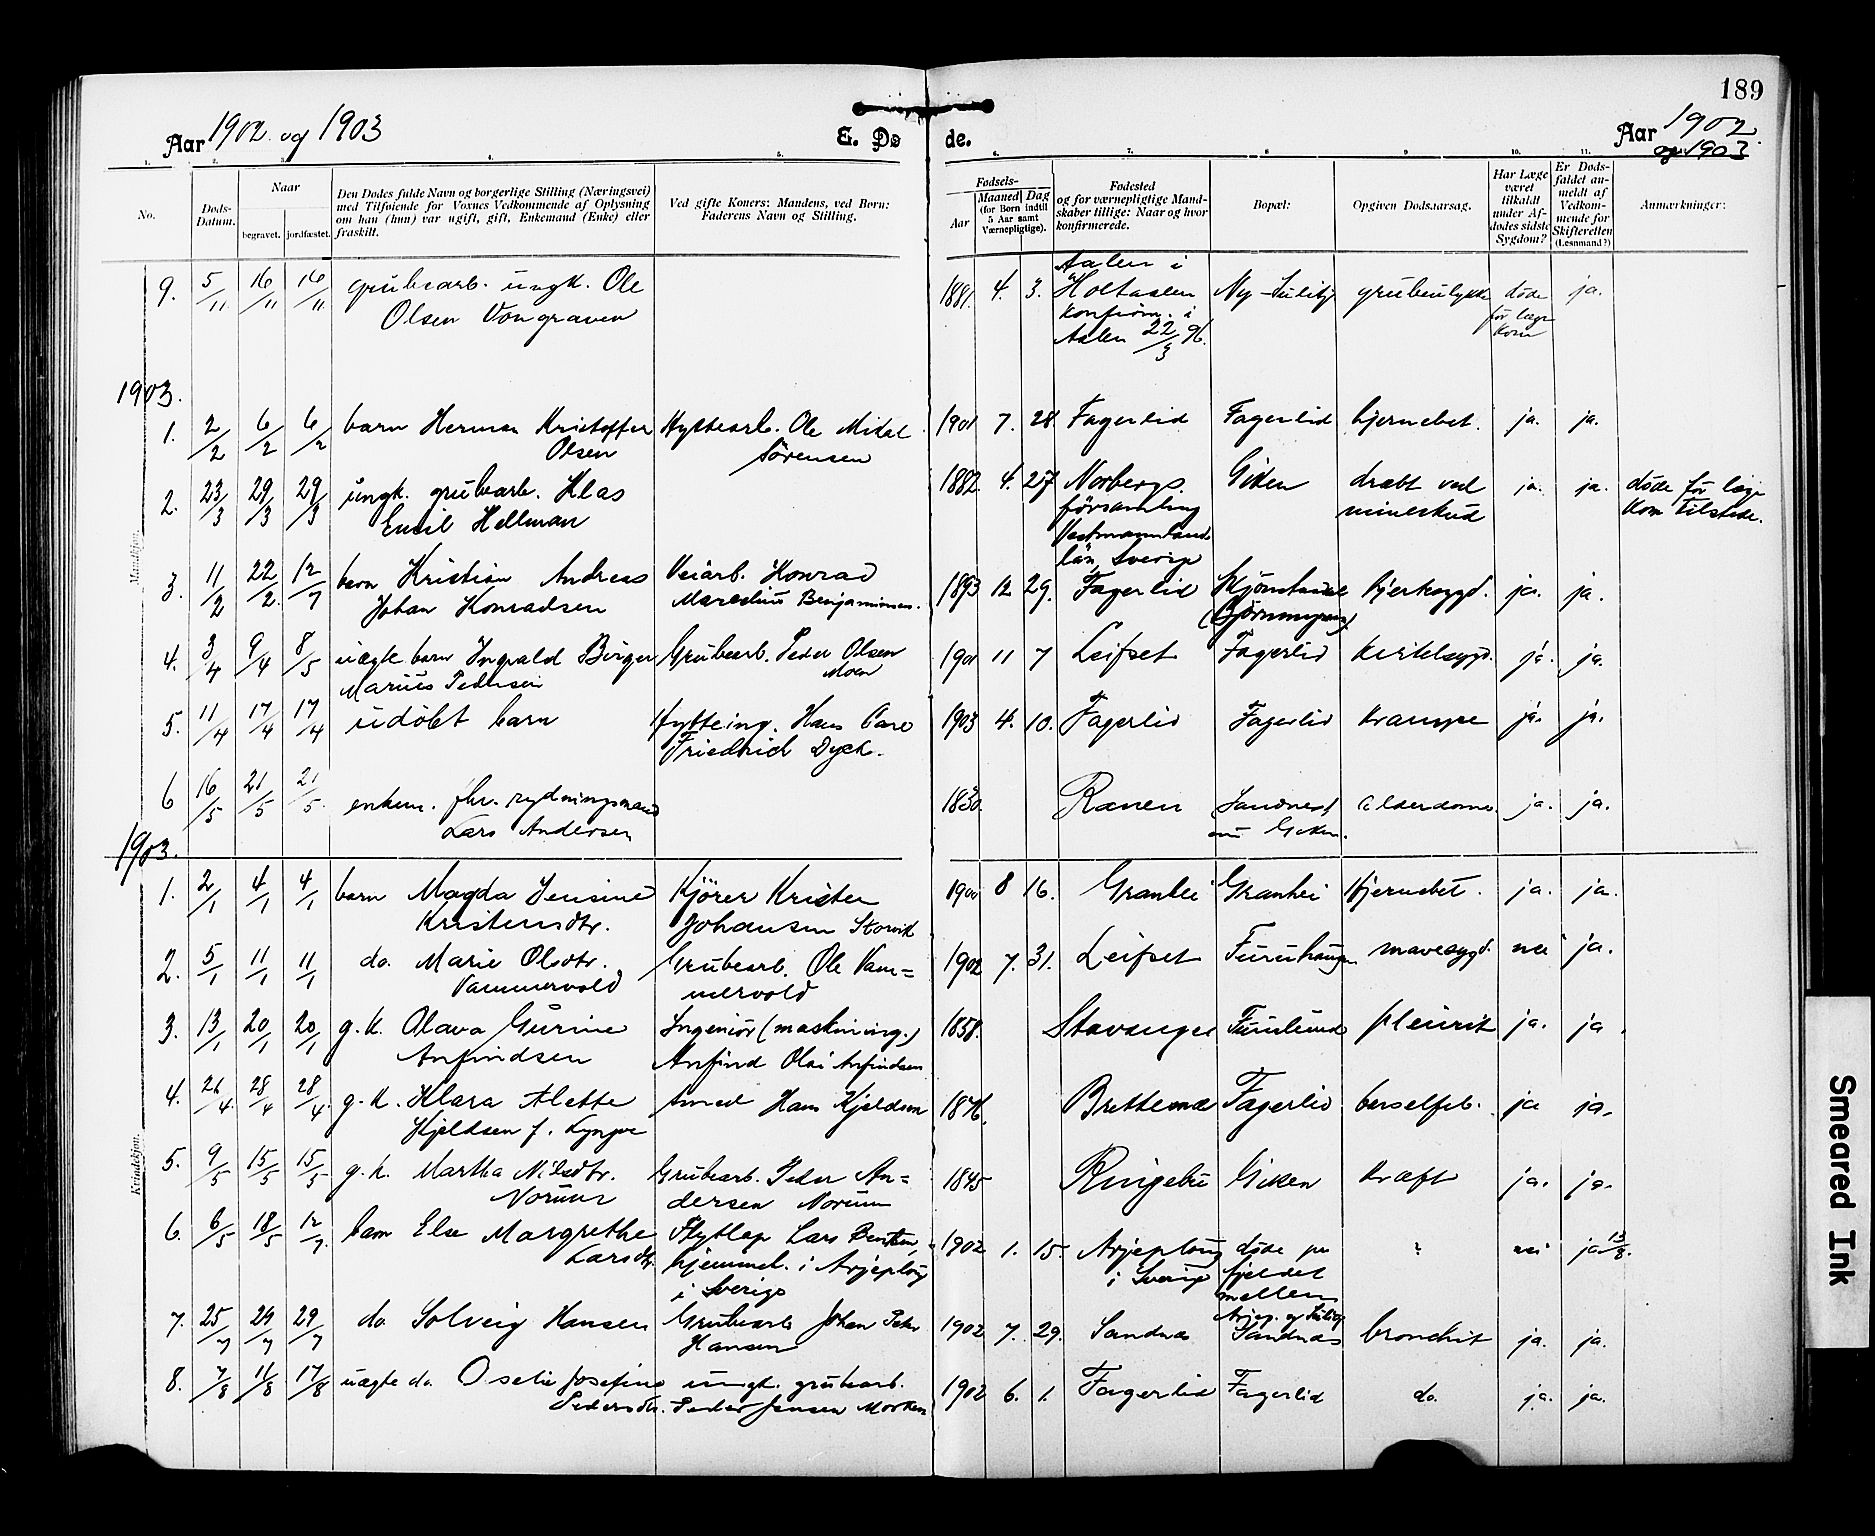 189
Aar 1902 og 1903
E. Dø de.
Aar 1902
og 1903
1. 2. 3. 4. 5. 6. 7. 8. 9. 10. 11.
No.
Døds-
Datum.
Naar
begravet. jordfæstet.
Den Dødes fulde Navn og borgerlige Stilling (Næringsvei)
med Tilføiende for Voxnes Vedkommende af Oplysning
om han (hun) var ugift, gift, Enkemand (Enke) eller
fraskilt.
Ved gifte Koners: Mandens, ved Børn:
Faderens Navn og Stilling.
Fødsels-
Aar
Maaned Dag
(for Børn indtil
5 Aar samt
Værnepligtige).
Fødested
og for værnepligtige Mand-
skaber tillige: Naar og hvor
konfirmerede.
Bopæl:
Opgiven Dødsaarsag.
Har Læge
været
tilkaldt
under Af-
dødes sidste
Sygdom?
Er Døds-
faldet an-
meldt af
Vedkom-
mende for
Skifteretten
(Lensmand?)
Anmærkninger:
Mandkjøn.
9. 5/11 16/11 16/11 grubearb. ungk. Ole
Olsen Vongraven
1881. 4. 3. Aalen i
Holtaalen
konfirm. i
Aalen 22/3 96.
Ny-Sulitj. grubeulykke døde
før læge
kom
ja.
1903.
1. 2/2 6/2 6/2 barn Herman Kristoffer
Olsen
Hyttearb. Ole Midal
Sørensen
1901 7. 28 Fagerlid Fagerlid hjernebet. ja. ja.
2. 23/3 29/3 29/3 ungk. grubearb. Klas
Emil Hellman
1882. 4. 27 Norbergs.
församling
Vestmannland
län, Sverige
Giken dræbt ved
mineskud
ja. ja. døde før læge
kom tilstede.
3. 11/2 22/2. 12/7 barn Kristian Andreas
Johan Konradsen
Veiarb. Konrad
Maredius Benjaminsen.
1893 12 29. Fagerlid Skjönstadal
hjertesygd. ja. ja.
4. 3/4 9/4 8/5 uægte barn Ingvald Birger
Marius Pedersen
Grubearb. Peder Olsen
Moen
1901 11 7 Leifset Fagerlid kirtelsygd. ja. ja.
5. 11/4 17/4 17/4 udøbt barn
Hytteing. Hans Carl
Friedrich Dyck.
1903 4. 10. Fagerlid Fagerlid krampe ja. ja.
6 16/5 21/5 21/5. enkem. fhv. rydningsmand
Lars Andersen
1830. Ranen Sandnes
nu Giken.
alderdoms. ja. ja.
1903.
Kvindekjøn.
1. 2/1 4/1 4/1 barn Magda Jensine
Kristensdtr.
Kjörer Kristen
Johansen Storvik
1900 8 16. Granhei Granhei Hjernebet. ja. ja.
2. 5/1 11/1 11/1 do. Marie Olsdtr.
Vammervold
Grubearb. Ole Vam=
mervold
1902 7. 31. Leifset Furuhaugen mavesygd. nei ja.
3. 13/1 20/1 20/1 g.k. Olava Gurine
Anfindsen
Ingeniør (maskining.)
Anfind Olai Anfindsen
1858. Stavanger Furulund pleurit ja. ja.
4. 26/4. 28/4 28/4. g.k. Klara Alette
Kjeldsen f. Lynge
Smed Hans Kjeldsen
1876. Brettesnæs Fagerlid barselfeb. ja ja.
5. 9/5 15/5 15/5 g.k. Martha Nilsdtr.
Norum
Grubearb. Peder An=
dersen Norum
1845 Ringebu Giken kræft ja. ja.
6. 6/5 18/5 12/7. barn Else Margrethe
Larsdtr.
Flytlap Lars
hjemmeh. i Arjeploug
i Sverige
1902 1. 15. Arjeploug
i Sverige
døde på
fjeldet
mellem
Arjep. og Sulitj.
? nei ja 13/8.
7. 25/7 29/7 29/7 do Solveig Hansen
Grubearb Johan Peder
Hansen
1902 7. 29. Sandnæs Sandnæs bronchit ja. ja.
8. 7/8 11/8 17/8 uægte do. Oselie Josefine
Pedersdtr.
ungk. grubearb.
Peder Jensen Morken
1902 6. 1. Fagerlid Fagerlid do. ja. ja.
Smeared Ink